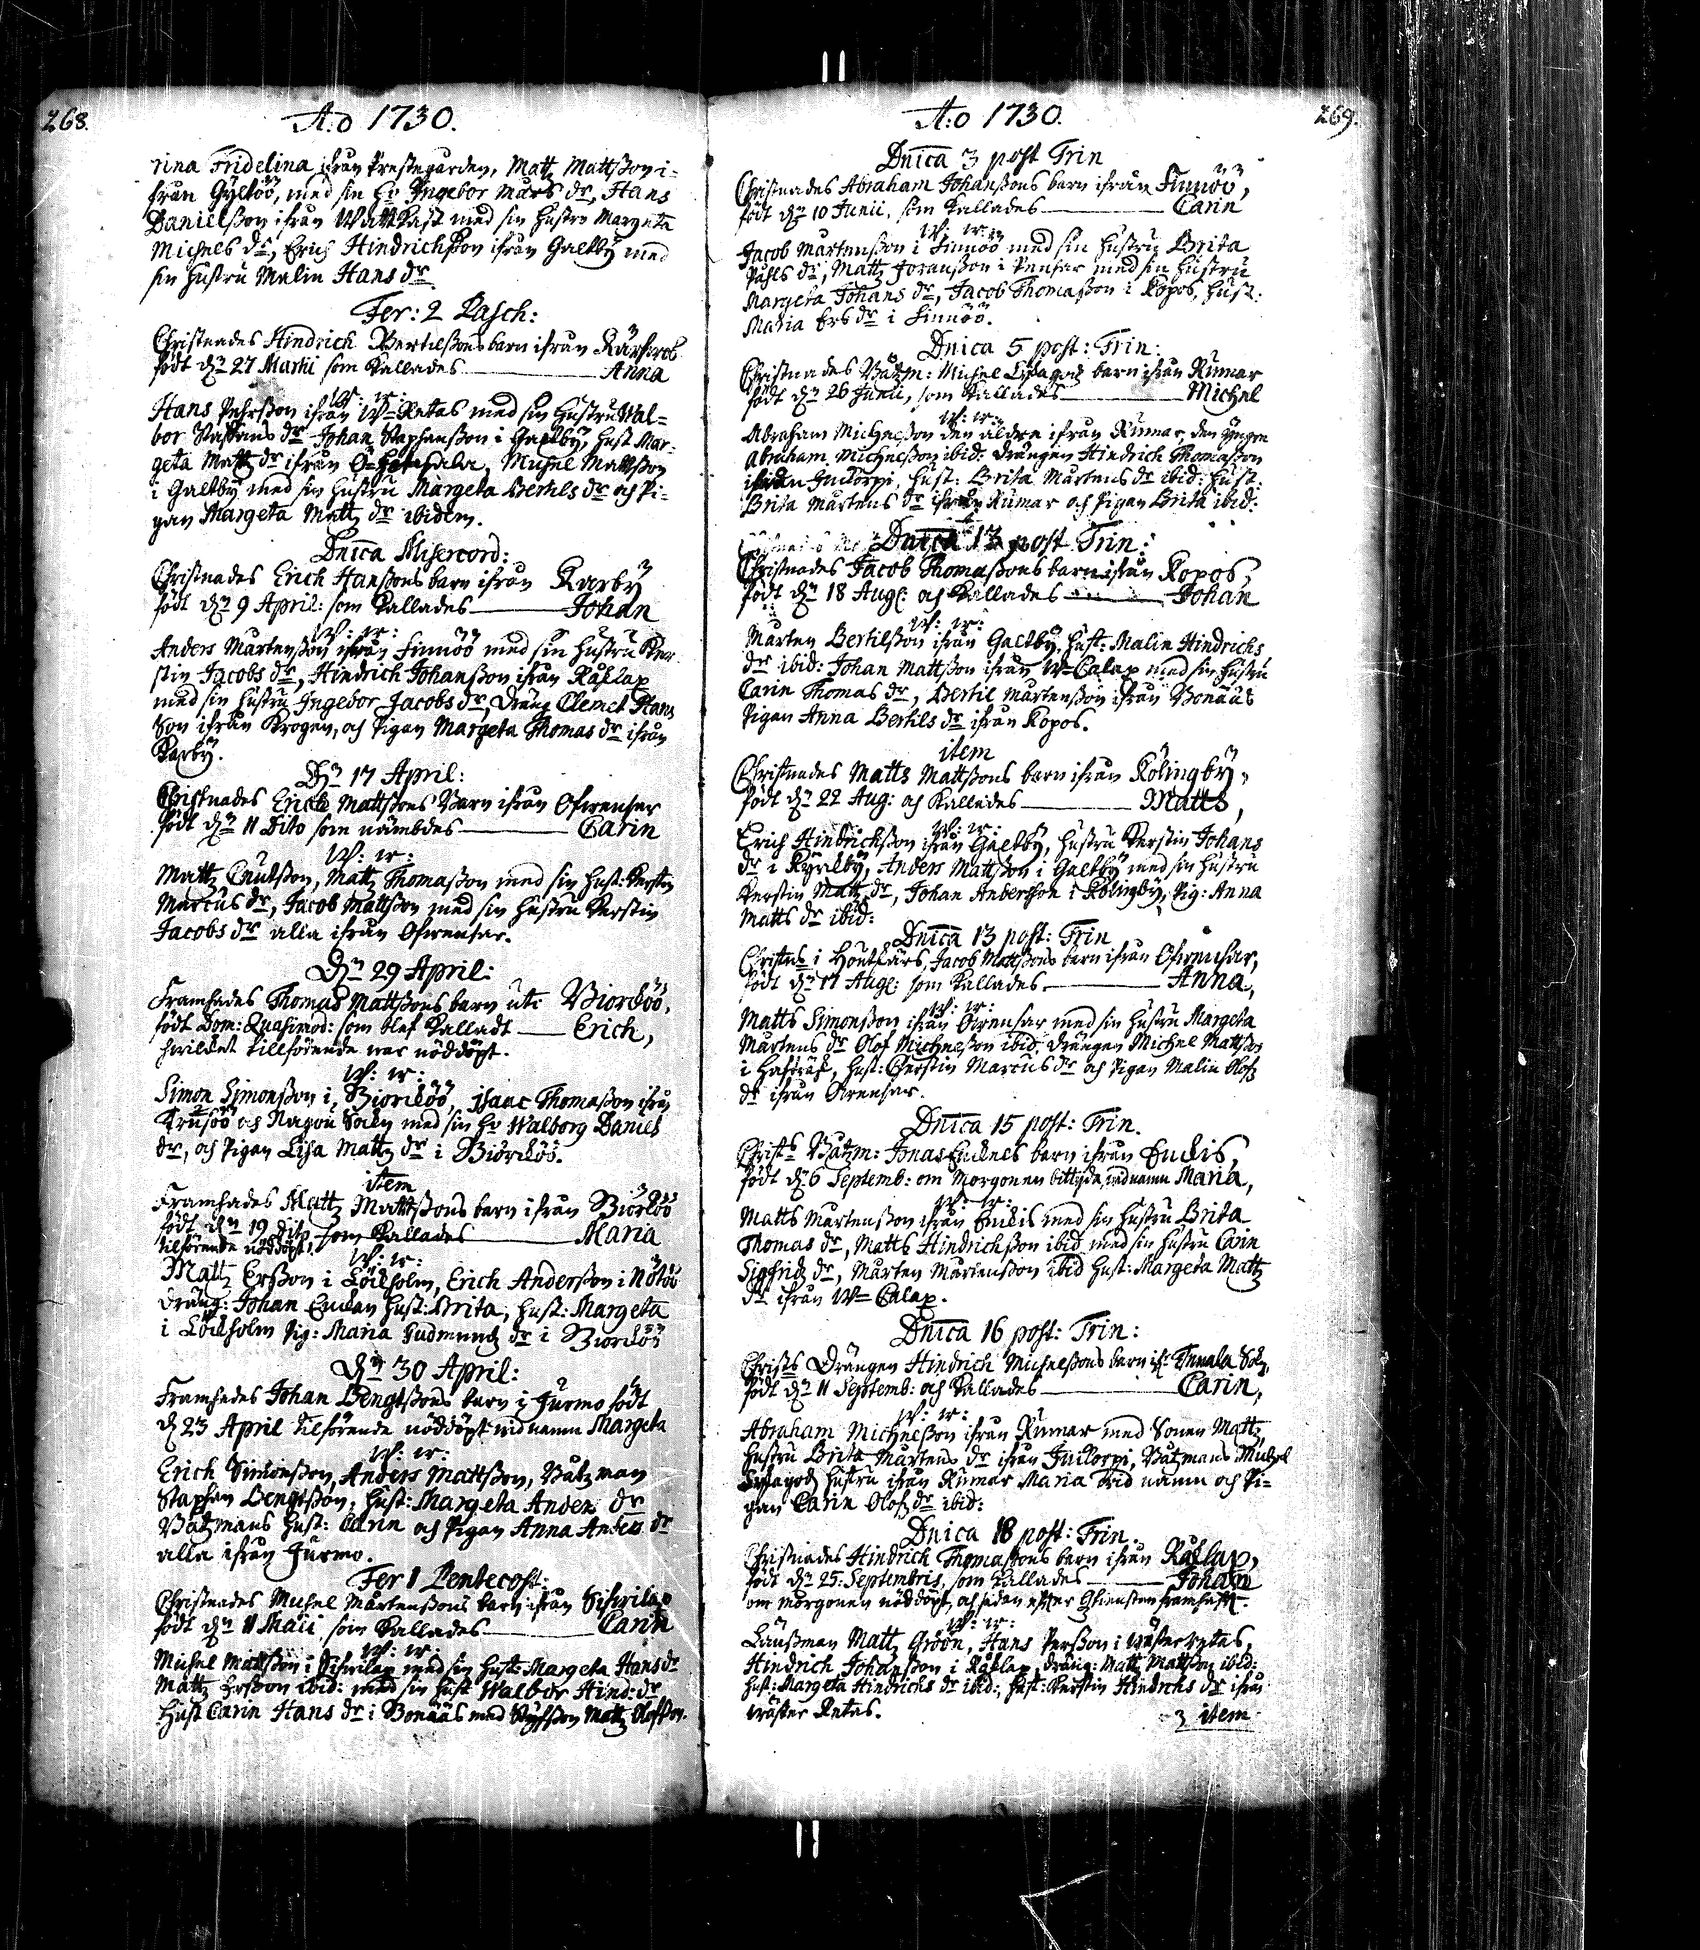 268.
A:o 1730.
rina Fridelina ifrån Prestegården, Matz Mattsson i-
från Gyltöö, med sin h: Ingebor Marsdr, Hans
Danielsson ifrån Wattkast med sin hustru Margeta
Michels dr, Erich Hindrichsson ifrån Galtby med
sin hustru Malin Hans dr
Fer: 2 Pasch:
Christnades Hindrich Bertilssons barn ifrån
födt d: 27 Martii som kallades Anna
W: w:
Hans Pehrsson ifrån W Retas med sin hustru Wal-
bor Staffans dr Johan Staphansson i Galtby, hust Mar-
geta Matz dr ifrån Michel Mattsson
i Galtby med sin hustru Margeta Bertils dr och Pi-
gan Margeta Matz dr ibidem.
Dnica Misercord:
Christnades Erich Hanssons barn ifrån Karby
födt dn 9 April: som kallades Johan
W: w:
Anders Mårtensson ifrån Finnöö med sin hustru Ker-
stin Jacobs dr, Hindrich Johansson ifrån Käklax
med sin hustru Ingebor Jacobs dr, Dräng Clemet Hans
Son ifrån Krogen, och Pigan Margeta Thomas dr ifrån
Karby.
Dn 17 April:
Christnades Erich Mattssons Barn ifrån Ofwensar
födt dn 11 Dito som nämbdes Carin
W: w:
Matz Cnutsson, Matz Thomasson med sin hust: Kerstin
Marcus dr, Jacob Mattsson med sin hustru Kerstin
Jacobs dr alla ifrån Ofwensar.
Dn 29 April:
Framhades Thomas Mattssons barn uti Biorköö,
födt Dom: Quasimod: som blef kalladt Erich,
hwilket tillförende war nöddöpt.
W: w:
Simon Simonsson i Biorköö, Isaac Thomasson ifrån
med sin h: Walborg Daniels
dr, och Pigan Lisa Matz dr i Biörköö.
item
Framhades Matz Mattssons barn ifrån Biorköö
födt dn 19 Dito som kallades Maria
tilförende nöddöpt,
W: w:
Matz Ersson i Löckholm, Erich Andersson i Nötöö
Dräng: Johan hust: Brita, hust: Margeta
i Löckholm Pig: Maria Gudmundz dr i Biorköö
Dn 30 April:
Framhades Johan Bengtssons barn i Jurmo födt
d 23 April tilförende nöddöpt wid namn Margeta
W: w:
Erich Simonsson, Anders Mattsson, Båtzman
Staphan Bengtsson, hust: Margeta Anders dr
Båtzmans hust: Carin och Pigan Anna Anders dr
alla ifrån Jurmo.
Fer 1 Pentecost:
Christnades Michel Mårtenssons barn ifrån
födt dn 11 Maii, som kallades Carin
W: w:
Michel Mattsson i med sin hust: Margeta Hans dr
Matz Ersson ibid: med sin hust Walbor Hind: dr
Hust Carin Hans dr i Bonääs med Matz Olofsson.
269.
A:o 1730.
Dnica 3 post Trin
Christnades Abraham Johanssons barn ifrån Finnöö,
födt dn 10 Junii, som kallades Carin
W: w:
Jacob Mårtensson i Finnöö med sin hustru Brita
Påhls dr, Matz Joransson i Pensar med sin hustru
Margeta Johans dr, Jacob Thomasson i Kopos, hust:
Maria Ers dr i Finnöö.
Dnica 5 post: Trin:
Christnades Båtzm: Michel barn ifrån Rumar
födt dn 26 Junii, som kallades Michel
W: w:
Abraham Michelsson den äldre ifrån Rumar, den yngre
Abraham Michelsson ibid: Drängen Hindrich Thomasson
hust: Brita Mårtens dr ibid: hust:
Brita Mårtens dr ifrån Rumar och Pigan Brita ibid:
Dnica 13 post Trin:
Christnades Jacob Thomassons barn ifrån Kopos,
födt dn 18 Aug: och kallades Johan
W: w:
Mårten Bertilsson ifrån Galtby, hust: Malin Hindrichs
dr ibid: Johan Mattsson ifrån W Calax med sin hustru
Carin Thomas dr, Bertil Mårtensson ifrån Bonääs
Pigan Anna Bertils dr ifrån Kopos.
item
Christnades Matts Mattssons barn ifrån Kölingby,
födt dn 22 Aug: och kallades Matts,
W: w:
Erich Hindrichsson ifrån Galtby, hustru Kerstin Johans
dr i Kyrckby, Anders Mattsson i Galtby med sin hustru
Kerstin Matz dr, Johan Andersson i Kölingby, Pig: Anna
Matts dr ibid:
Dnica 13 post: Trin
Christnes i Houtskärs, Jacob Mattssons barn ifrån Ofwensar,
födt dn 17 Aug: som kallades Anna,
W: w:
Matts Simonsson ifrån Ofwensar med sin hustru Margeta
Mårtens dr Olof Michelsson ibid. Drängen Michel Mattsson
i hust: Cherstin Marcus dr och Pigan Malin Olofz
dr ifrån Ofwensar.
Dnica 15 post: Trin.
Christs Båtzm: Jonas barn ifrån
födt d: 6 Septemb: om Morgonen bittyda, widnamn Maria,
W: w:
Matts Mårtensson ifrån med sin hustru Brita
Thomas dr, Matts Hindrichsson ibid med sin hustru Carin
Sigfridz dr, Mårten Mårtensson ibid hust: Margeta Matz
dr ifrån W Calax.
Dnica 16 post: Trin:
Christs Drängen Hindrich Michelssons barn if:
födt dn 11 Septemb: och kallades Carin,
W: w:
Abraham Michelsson ifrån Rumar med Sonen Matz,
hustru Brita Mårtens dr ifrån Båtzmans Michel
hustru ifrån Rumar Maria wid namn och Pi-
gan Carin Olofz dr ibid:
Dnica 18 post: Trin.
Christnades Hindrich Thomassons barn ifrån Käklax,
födt dn 25: Septembris, som kallades Johan
om morgonen nöddöpt, och sedan effter Gtiensten framhafft.
W: w:
Länssman Matz Gröön, Hans Persson i wäster retas,
Hindrich Johansson i Käklax, dräng: Matz Mattsson ibid:
hust: Margeta Hindrichs dr ibid:, hust: Kerstin Hindrichs dr ifrån
wäster Retas.
item